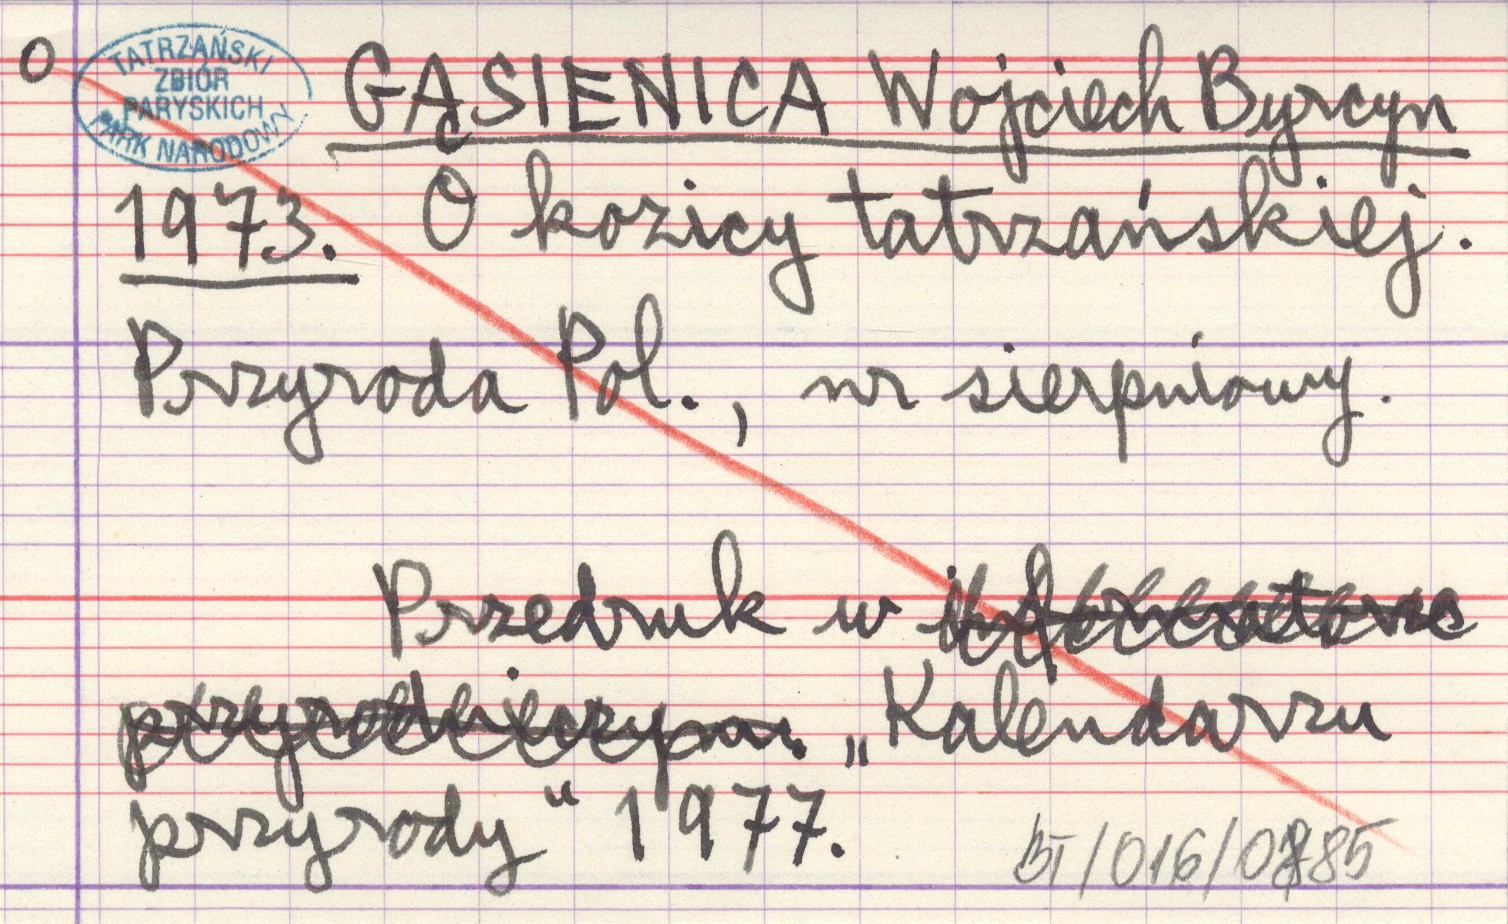 O
TATRZAŃSKI
ZBIÓR
PARYSKICH
PARK NARODOWY
GĄSIENICA Wojciech Byrcyn
1973. O kozicy tatrzańskiej.
Przyroda Pol., nr sierpniowy.
Przedruk w
przyrodniczym. „Kalendarzu
przyrody“ 1977.
BT/016/0785